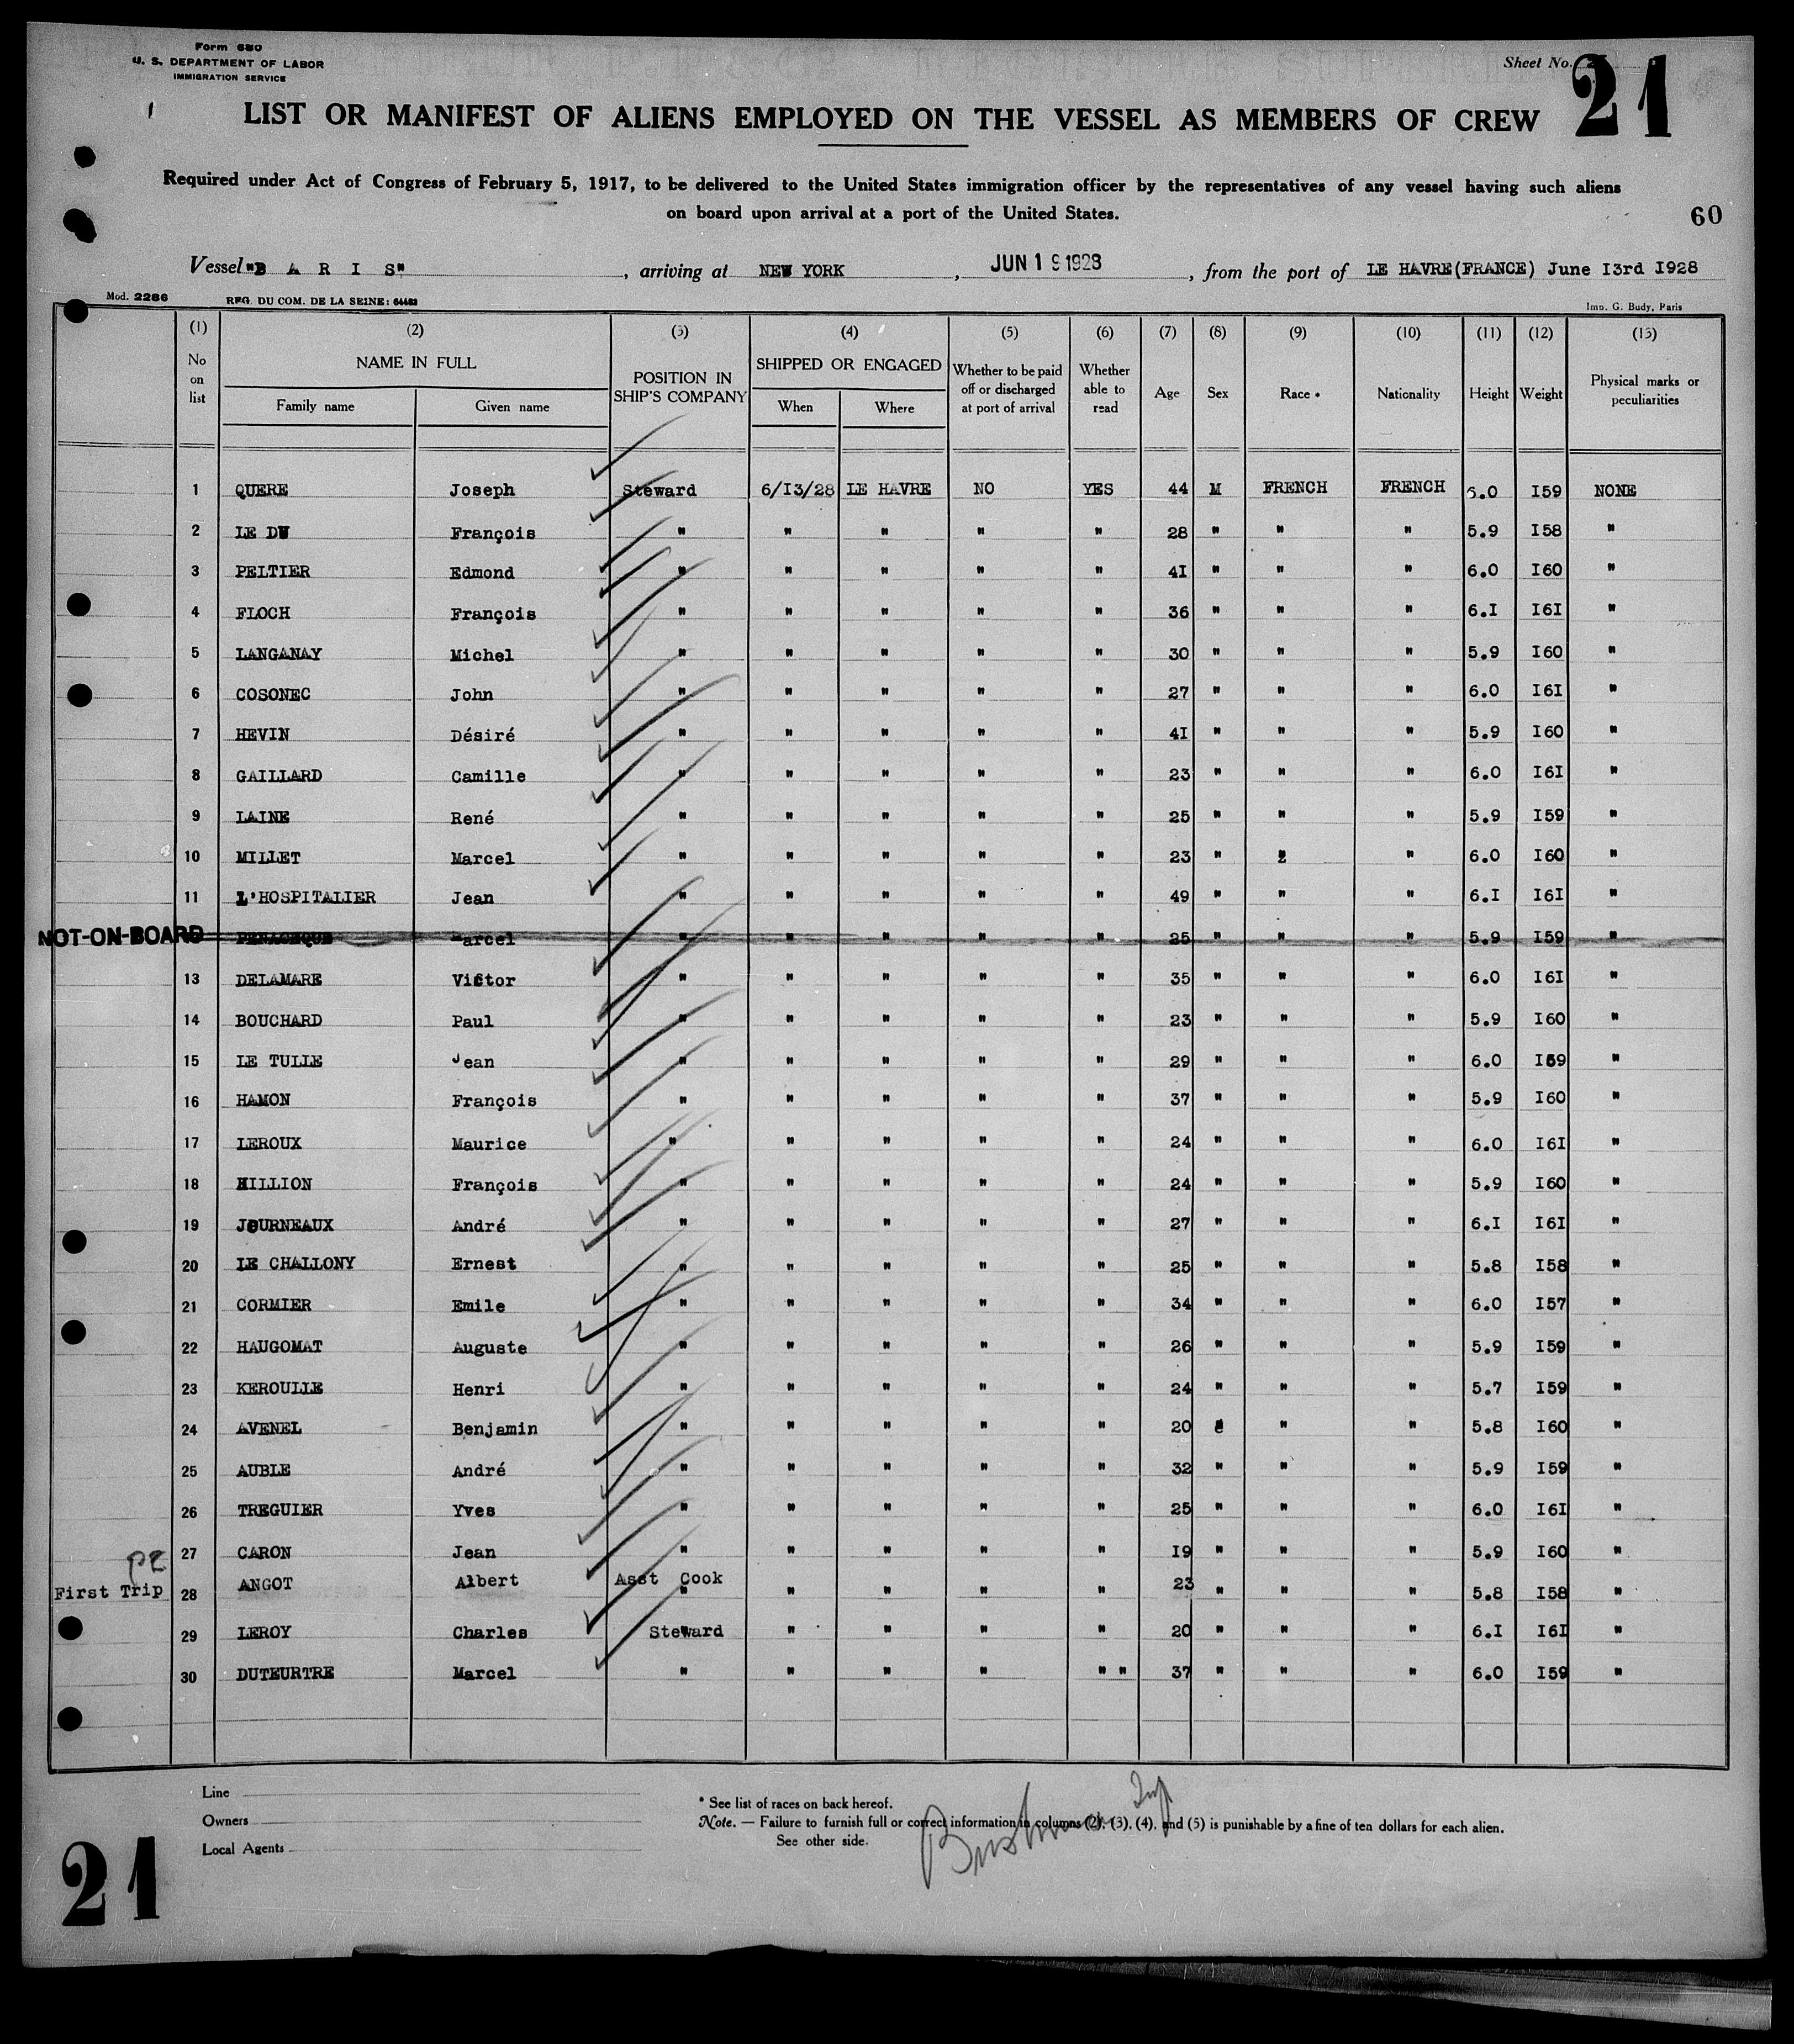 Form 680
U. S. DEPARTMENT OF LABOR
IMMIGRATION SERVICE
Sheet No.
21
LIST OR MANIFEST OF ALIENS EMPLOYED ON THE VESSEL AS MEMBERS OF CREW
Required under Act of Congress of February 5, 1917, to be delivered to the United States immigration officer by the representatives of any vessel having such aliens
on board upon arrival at a port of the United States.
60
Vessel "P A R I S" , arriving at NEW YORK , JUN 19 1928 , from the port of LE HAVRE(FRANCE) June I3rd I928
Mod. 2286 REG. DU COM. DE LA SEINE: 64483 Imp. G. Budy, Paris
(1) (2) (3) (4) (5) (6) (7) (8) (9) (10) (11) (12) (13)
No on list NAME IN FULL Family name Given name POSITION IN SHIP'S COMPANY SHIPPED OR ENGAGED When Where Whether to be paid off or discharged at port of arrival Whether able to read Age Sex Race * Nationality Height Weight Physical marks or peculiarities
1 QUERE Joseph Steward 6/I3/28 LE HAVRE NO YES 44 M FRENCH FRENCH 6.0 I59 NONE
2 LE DU François " " " " " 28 " " " 5.9 I58 "
3 PELTIER Edmond " " " " " 4I " " " 6.0 I60 "
4 FLOCH François " " " " " 36 " " " 6.I I6I "
5 LANGANAY Michel " " " " " 30 " " " 5.9 I60 "
6 COSONEC John " " " " " 27 " " " 6.0 I6I "
7 HEVIN Désiré " " " " " 4I " " " 5.9 I60 "
8 GAILLARD Camille " " " " " 23 " " " 6.0 I6I "
9 LAINE René " " " " " 25 " " " 5.9 I59 "
10 MILLET Marcel " " " " " 23 " " " 6.0 I60 "
11 L'HOSPITALIER Jean " " " " " 49 " " " 6.I I6I "
NOT-ON-BOARD Marcel " " " " " 25 " " " 5.9 I59 "
13 DELAMARE Victor " " " " " 35 " " " 6.0 I6I "
14 BOUCHARD Paul " " " " " 23 " " " 5.9 I60 "
15 LE TULLE Jean " " " " " 29 " " " 6.0 I59 "
16 HAMON François " " " " " 37 " " " 5.9 I60 "
17 LEROUX Maurice " " " " " 24 " " " 6.0 I6I "
18 HILLION François " " " " " 24 " " " 5.9 I60 "
19 JOURNEAUX André " " " " " 27 " " " 6.I I6I "
20 LE CHALLONY Ernest " " " " " 25 " " " 5.8 I58 "
21 CORMIER Emile " " " " " 34 " " " 6.0 I57 "
22 HAUGOMAT Auguste " " " " " 26 " " " 5.9 I59 "
23 KEROULLE Henri " " " " " 24 " " " 5.7 I59 "
24 AVENEL Benjamin " " " " " 20 " " 5.8 I60 "
25 AUBLE André " " " " " 32 " " " 5.9 I59 "
26 TREGUIER Yves " " " " " 25 " " " 6.0 I6I "
27 CARON Jean " " " " " I9 " " " 5.9 I60 "
First Trip 28 ANGOT Albert Asst Cook " " " " 23 " " " 5.8 I58 "
29 LEROY Charles Steward " " " " 20 " " " 6.I I6I "
30 DUTEURTRE Marcel " " " " " " 37 " " " 6.0 I59 "
Line
Owners
Local Agents
* See list of races on back hereof.
Note. — Failure to furnish full or correct information in columns (2), (3), (4), and (5) is punishable by a fine of ten dollars for each alien.
See other side.
21